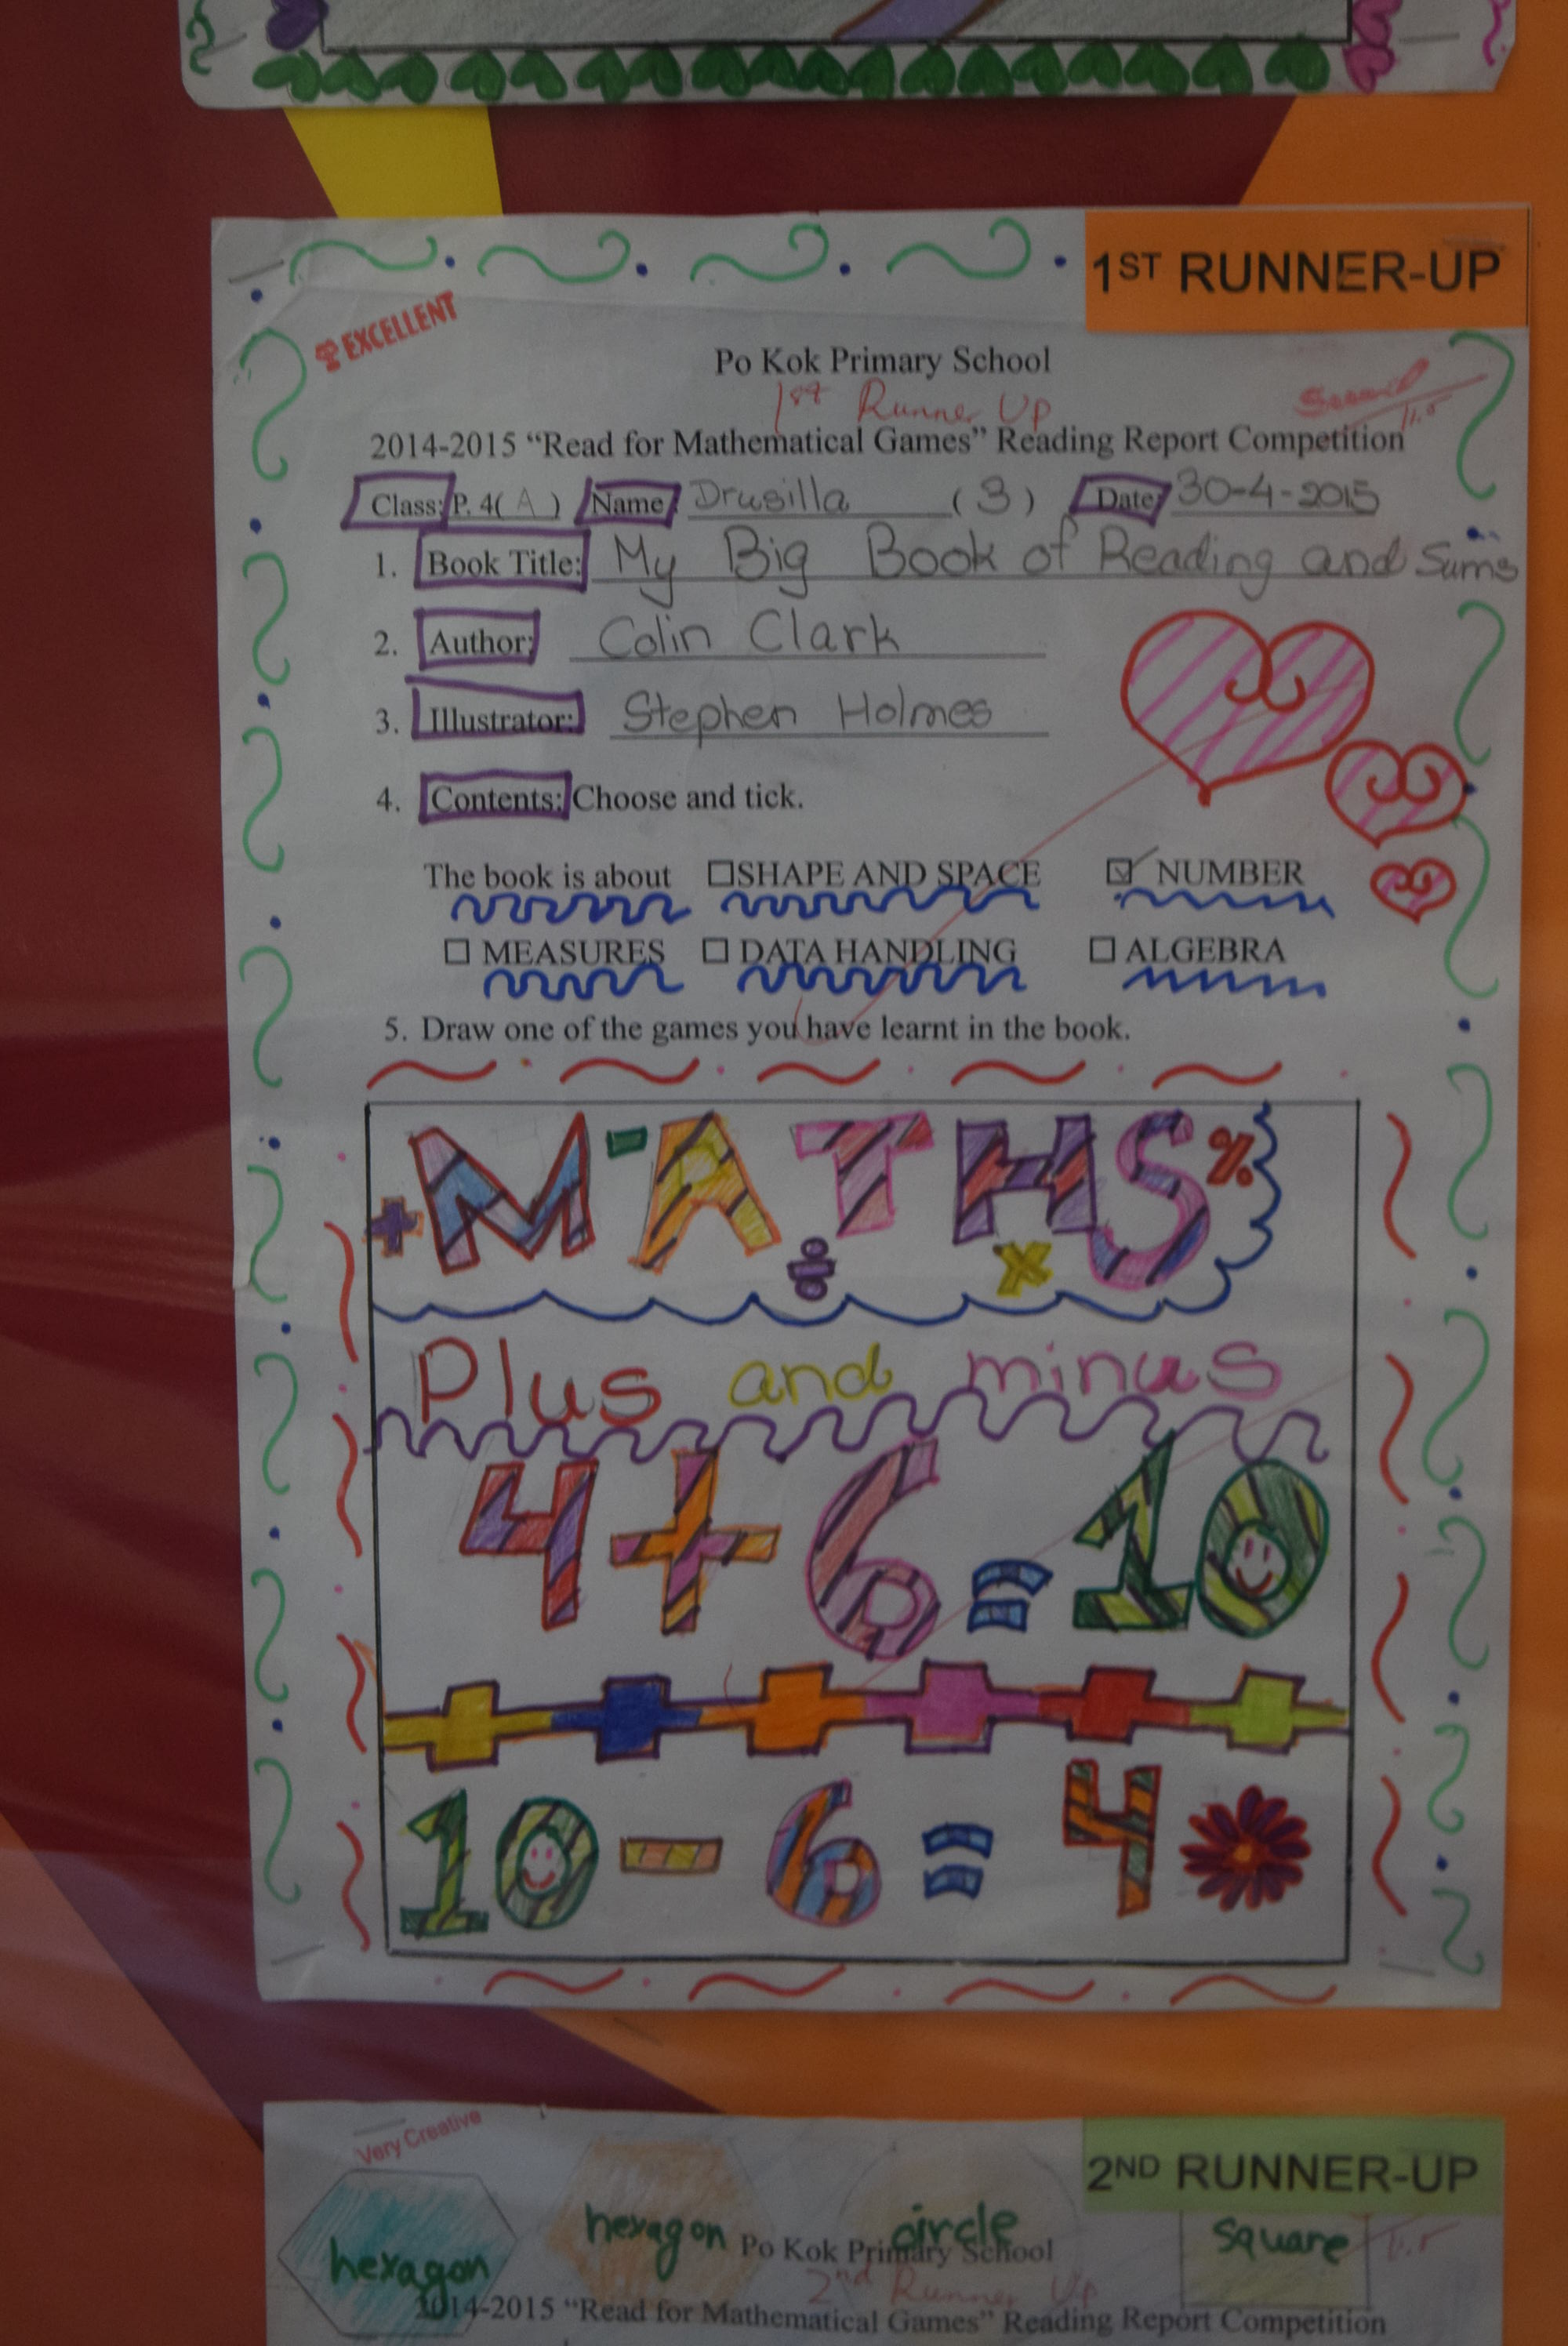 1ST RUNNER-UP
EXCELLENT
Po Kok Primary School
1st Runner Up
2014-2015 “Read for Mathematical Games” Reading Report Competition
Class: P. 4( A ) Name: Drusilla (3) Date: 30-4-2015
1. Book Title: My Big Book of Reading and Sums
2. Author: Colin Clark
3. Illustrator: Stephen Holmes
4. Contents: Choose and tick.
The book is about ☐SHAPE AND SPACE ☑ NUMBER
☐ MEASURES ☐ DATA HANDLING ☐ ALGEBRA
5. Draw one of the games you have learnt in the book.
+ M - A ÷ T H × S %
Plus and minus
4+6=10
10-6=4
Very Creative
2ND RUNNER-UP
hexagon hexagon circle square
Po Kok Primary School
2nd Runner Up
2014-2015 “Read for Mathematical Games” Reading Report Competition